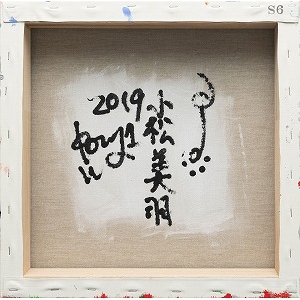 S6
2019
小松美羽